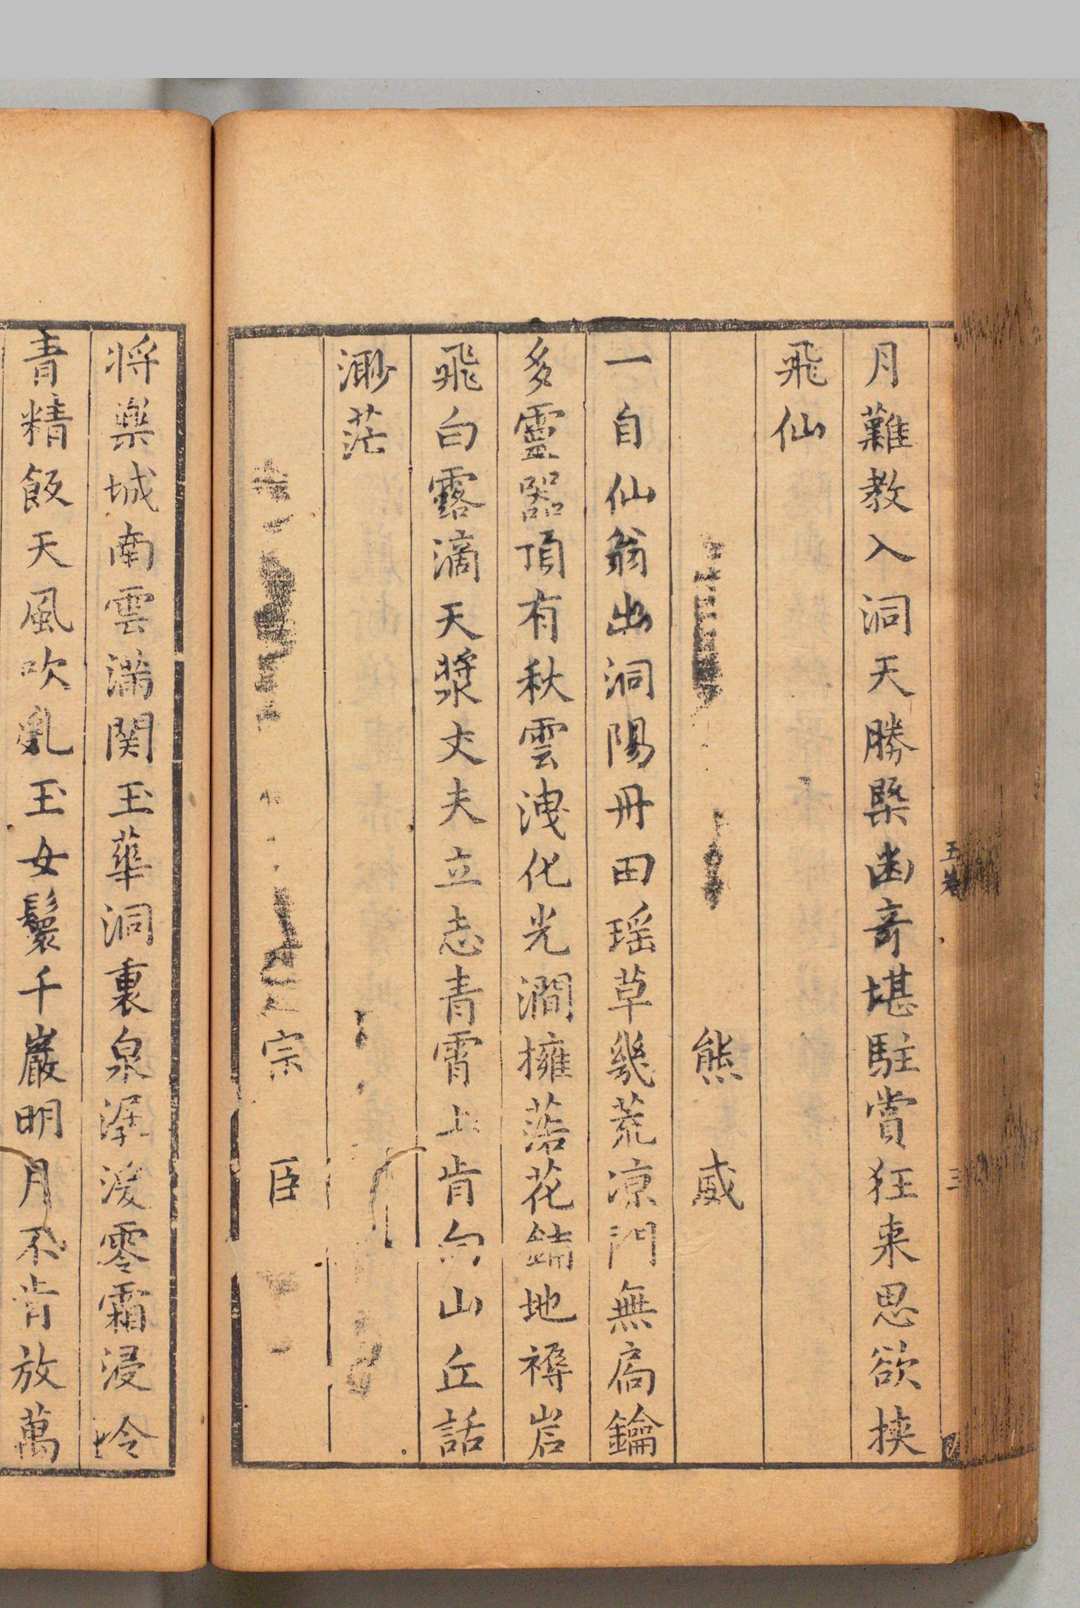 月難教入洞天勝槩幽奇堪駐賞狂来思欲挟
飛仙
熊威
一自仙翁出洞陽丹田瑶草幾荒凉門無扃鑰
多靈器頂有秋雲洩化光澗擁落花鋪地褥岩
飛白露滴天漿丈夫立志青霄上肯向山丘話
渺茫
宗臣
将樂城南雲满関玉華洞裏泉潺湲零霜浸冷
青精飯天風吹乱玉女鬟千巖明月不肯放萬
玉華
三